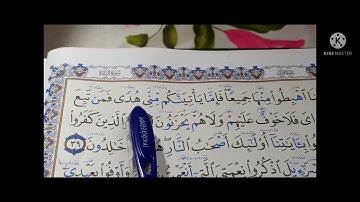 سورة البقرة
KINEMASTER
نا اهبطوا منها جميعا فإما يأتينكم مني هدى فمن تبع
اى فلا خوف عليهم ولا هم يحزنون والذين كفروا
وا بآياتنا أولئك أصحاب النار هم خالدون ٣٩
اذكروا نعمتي التي وأوفوا بعهدي